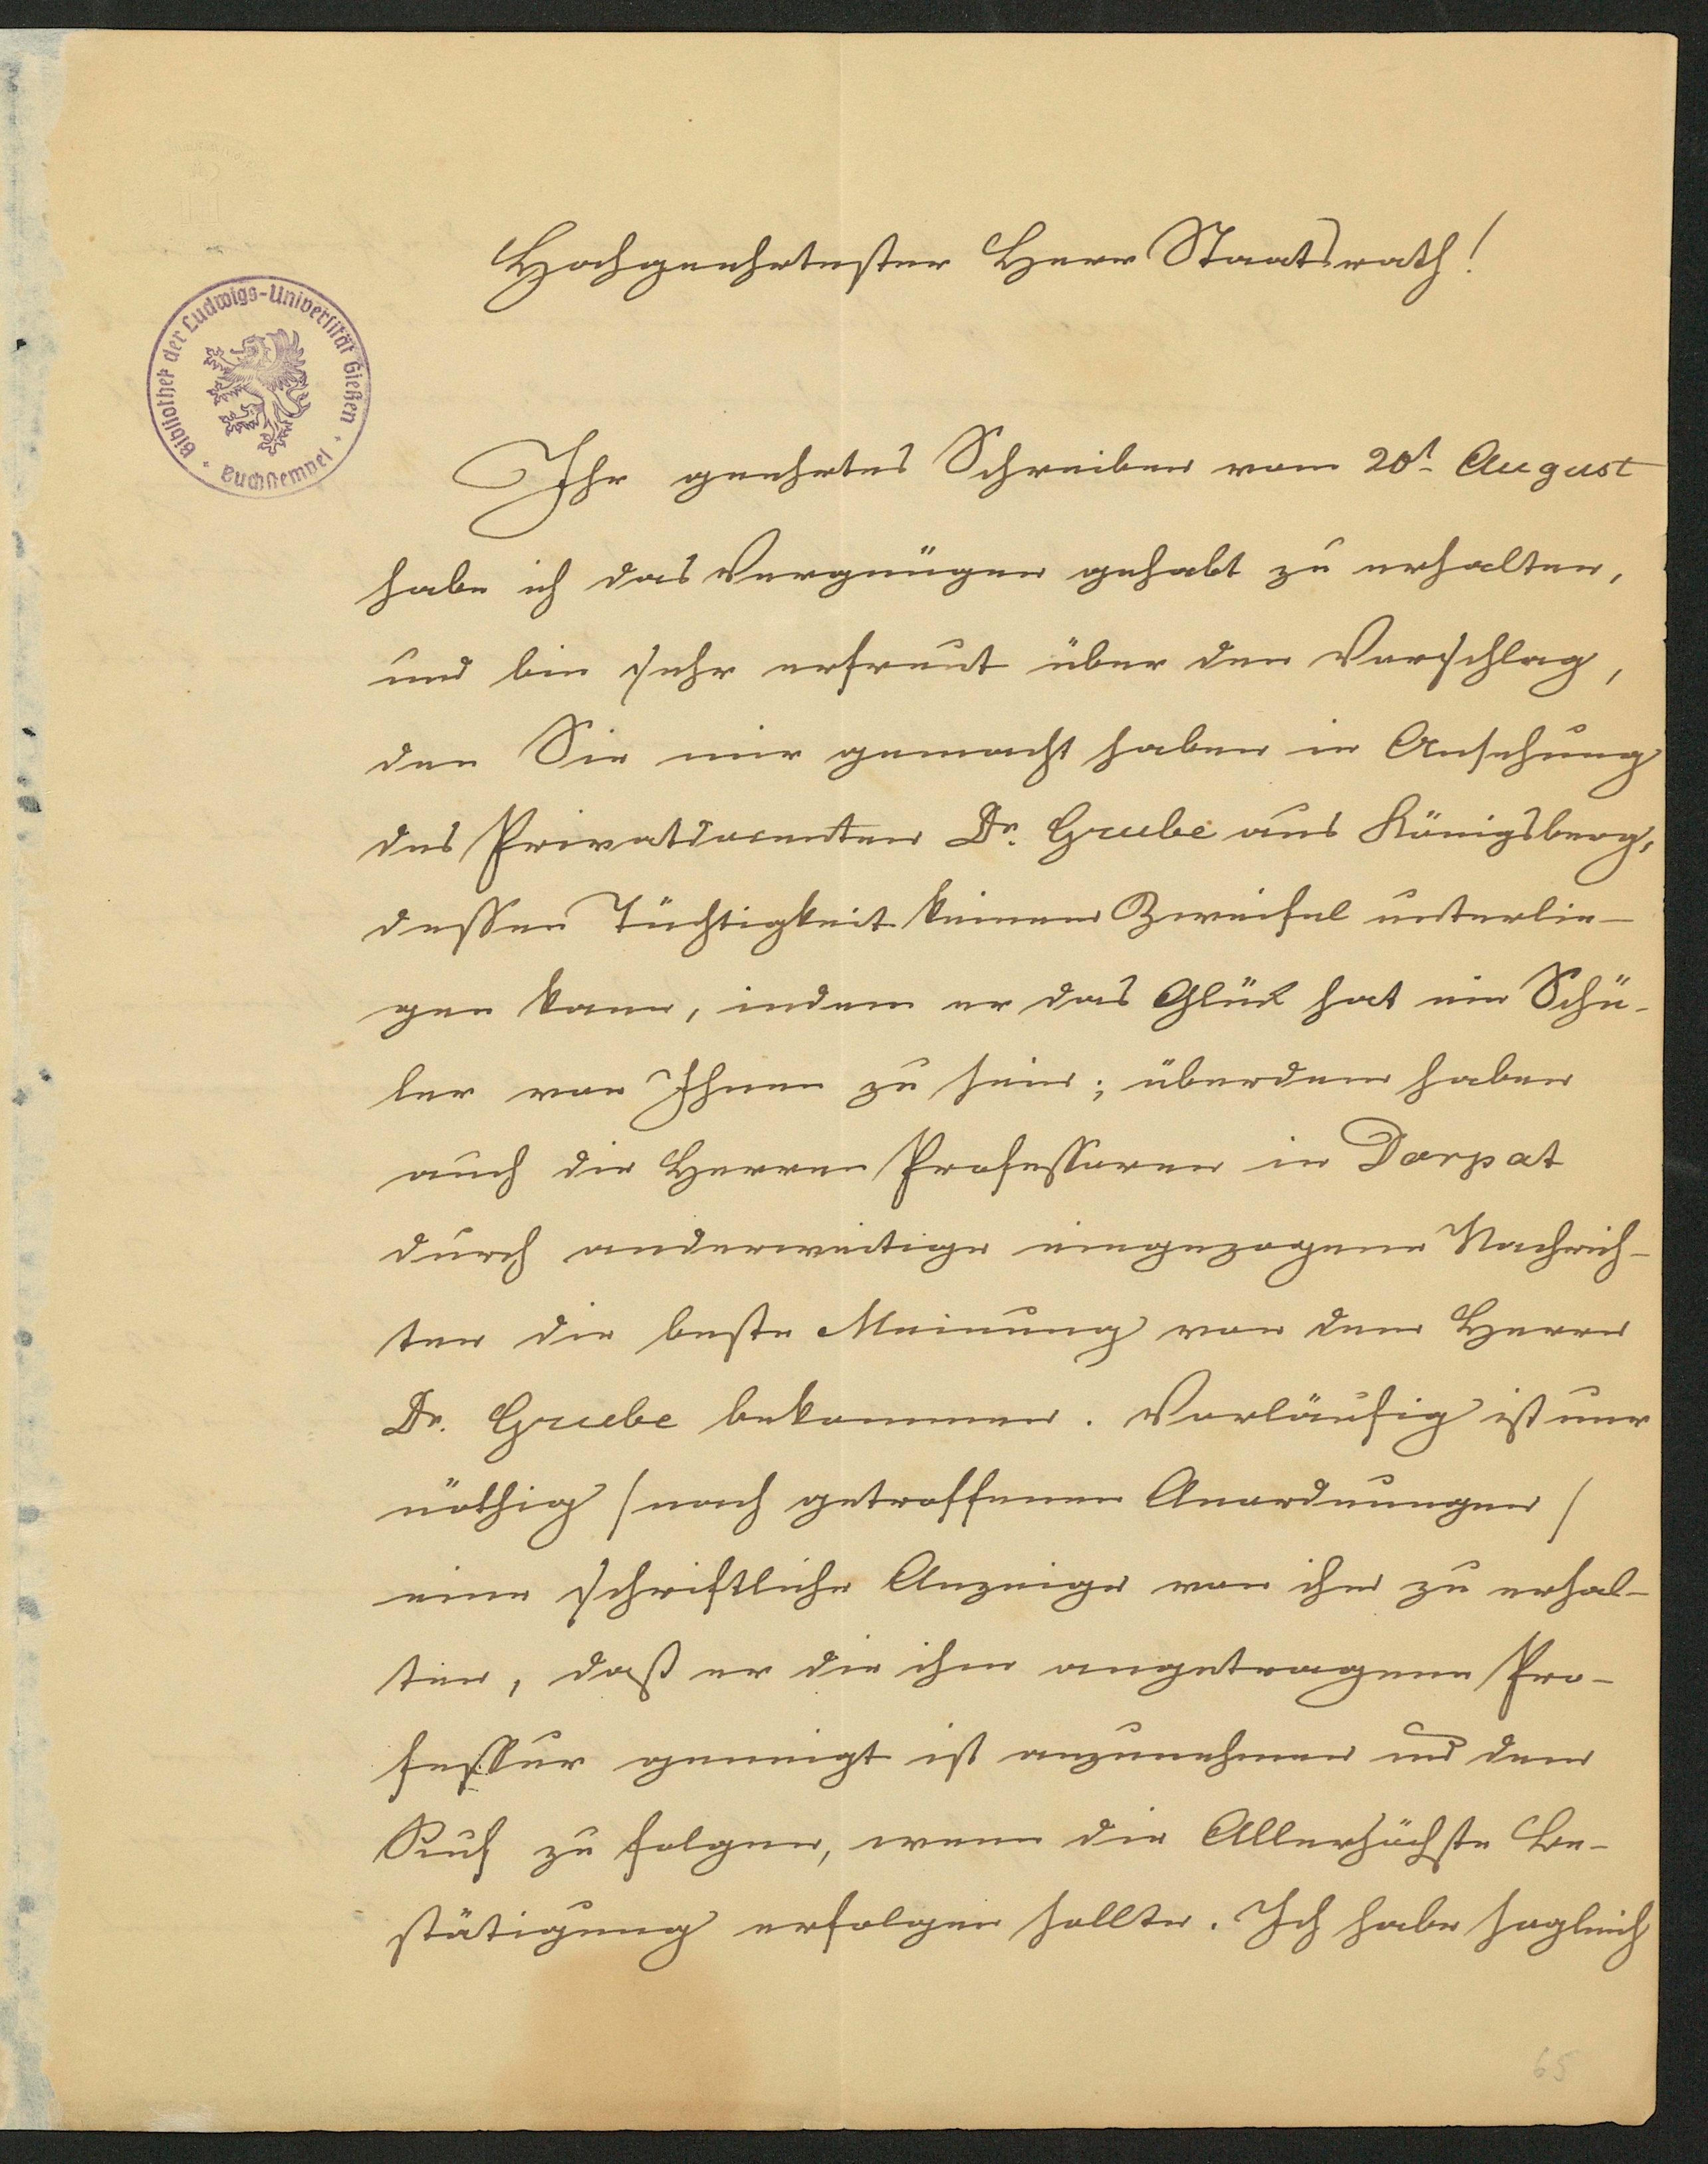 Hochgeehrtester Herr Staatsrath!
Bibliothek der Ludwigs-Universität Gießen
Buchstempel
Ihr geehrtes Schreiben vom 20t August
habe ich das Vergnügen gehabt zu erhalten,
und bin sehr erfreut über den Vorschlag,
den Sie mir gemacht haben in Ansehung
des Privatdocenten Dr. Grube aus Königsberg,
dessen Tüchtigkeit keinem Zweifel unterlie-
gen kann, indem er das Glück hat ein Schü-
ler von Ihnen zu sein; überdem haben
auch die Herren Professoren in Dorpat
durch anderweitige eingezogene Nachrich-
ten die beste Meinung von dem Herrn
Dr. Grube bekommen. Vorläufig ist nur
nöthig (nach getroffenen Anordnungen)
eine schriftliche Anzeige von ihm zu erhal-
ten, daß er die ihm angetragene Pro-
fessur geneigt ist anzunehmen und dem
Ruf zu folgen, wenn die Allerhöchste Be-
stätigung erfolgen sollte. Ich habe sogleich
65